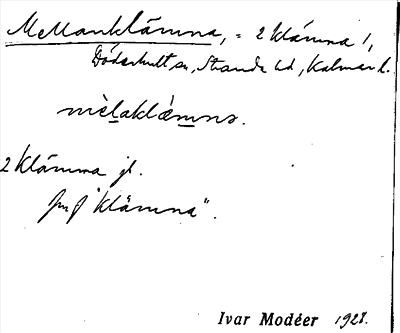 Mellanklämma, = 2 klämma 1,
Döderhult sn, Stranda hd, Kalmar l.
mèlaklämna.
2 klämma jf.
"klämna".
Ivar Modéer 1928.